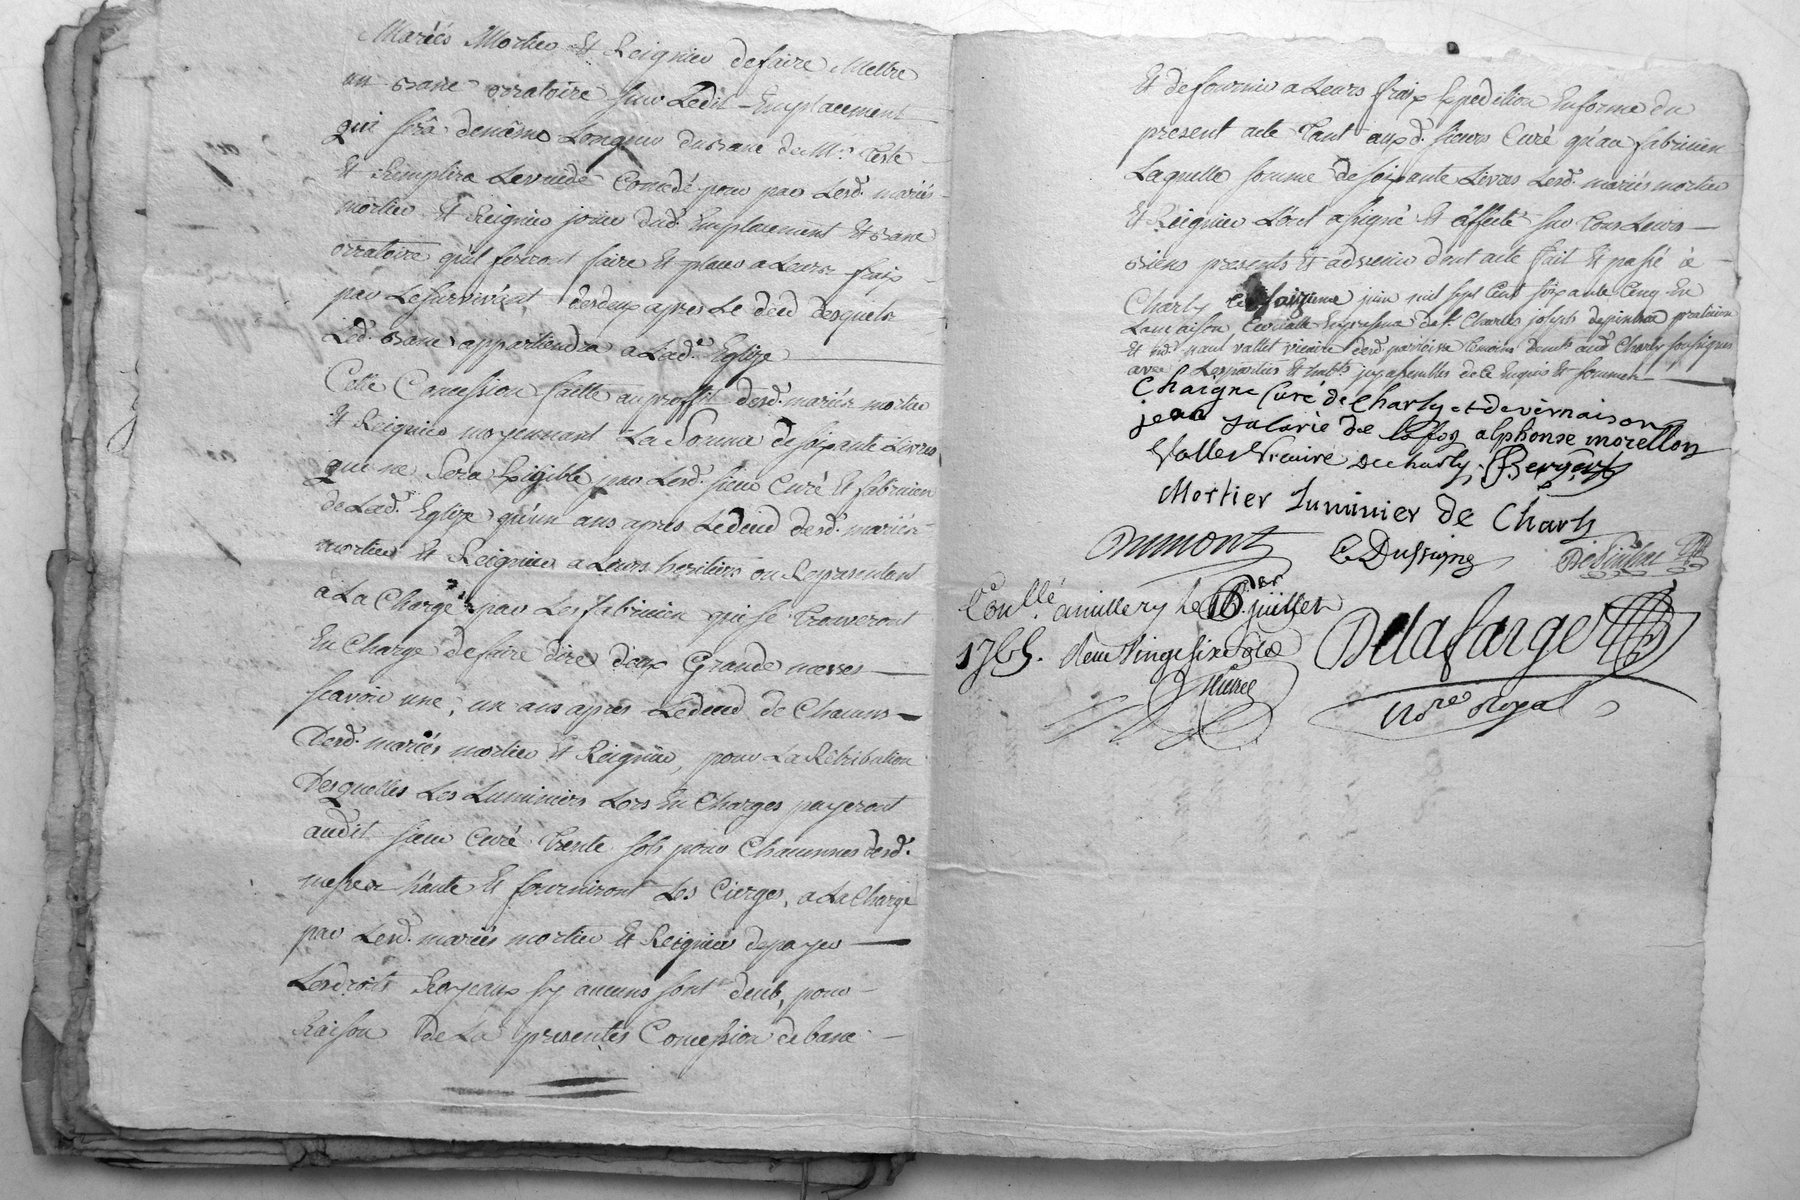 Mariés Mortier Et Reignier defaire Mettre
un banc orratoire sur Ledit Emplacement
qui serâ demême Longueur dubanc du Mr. Teste
Et Remplira Levuide Concedé pour par Lesd. mariés
mortier Et Reignier jouir dud. Emplacement Et banc
orratoire quil feront faire Et placer a Leurs fraix
par Lesurvivant desdeux apres Le deced desquels
Led. banc appartiendra a Lad.e Eglize
Cette Concession faitte au proffit desd. mariés mortier
Et Reignier moyennant La Somme desoixante Livres
qui ne Sera Exigible par Lesd. sieur Curé Et fabricien
de Lad. Eglize qu'un ans apres Ledeced desd. mariés
mortier Et Reignier a Leurs heritiers ou Representant
à La Charge par Les fabricien qui se Trouveront
En Charge defaire dire deux Grande messes
scavoir une, un ans apres Ledeced de Chacuns
Desd. mariés mortier Et Reignier, pour La Rêtribution
Desquelles Les Luminiers Lors En Charges payeront
audit sieur Curé Trente sols pour Chacunnes desd.
messes haute Et fourniront Les Cierges, a La Charge
par Lesd. mariés mortier Et Reignier depayer
Lesdroits Royeaux sy aucuns sont deub, pour
Raison de La presentes Concession de banc
Et defournir a Leurs fraix Expedition Enforme du
present acte Tant auxd. sieurs Curé qu'au fabricien
Laquelle somme desoixante Livres Lesd. mariés mortier
Et Reignier L'ont assigné Et affecté sur Tous Leurs
biens presents Et advenir dont acte fait Et passé à
Charly Le saizieme juin mil sept Cent soixante Cinq En
Lamaison Curialle Enpresence de Sr. Charles joseph praticien
Et vallet vicaire desd. parroisse Temoins aud. Charly soussignés
avec Lesparties Et de ce Enquis Et sommer
Chaigne Curé de Charly et devernaison
jean alphonse morellon
Vallet Vicaire de charly
Mortier Luminier de Charly
Dumont
Conllé amillery le 16 juillet
1765. vingt six
Delafarge
Nore Royal